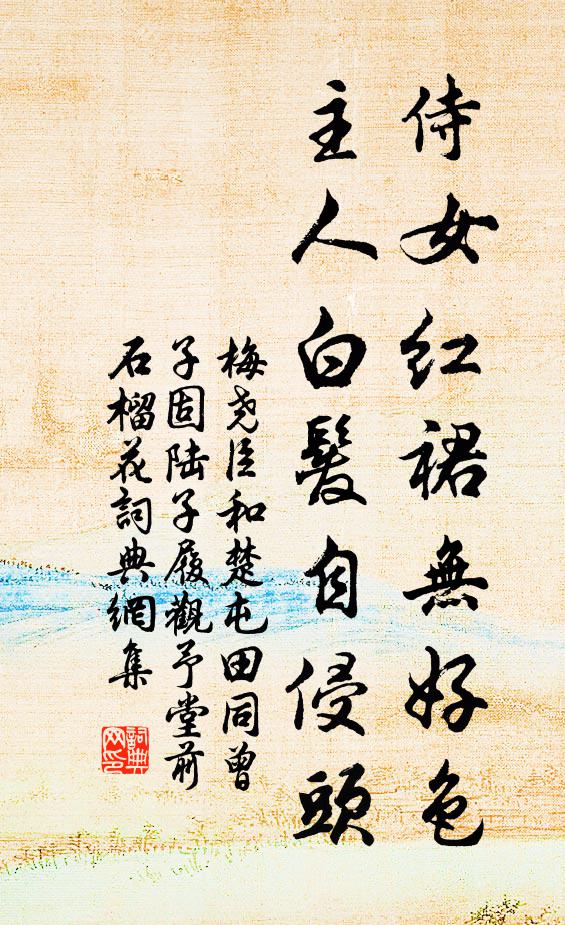 侍女红裙無好色
主人白髮自侵頭
梅尧臣和楚屯田同曾
子固陆子履觀予堂前
石榴花詞典網集
詞典
网印